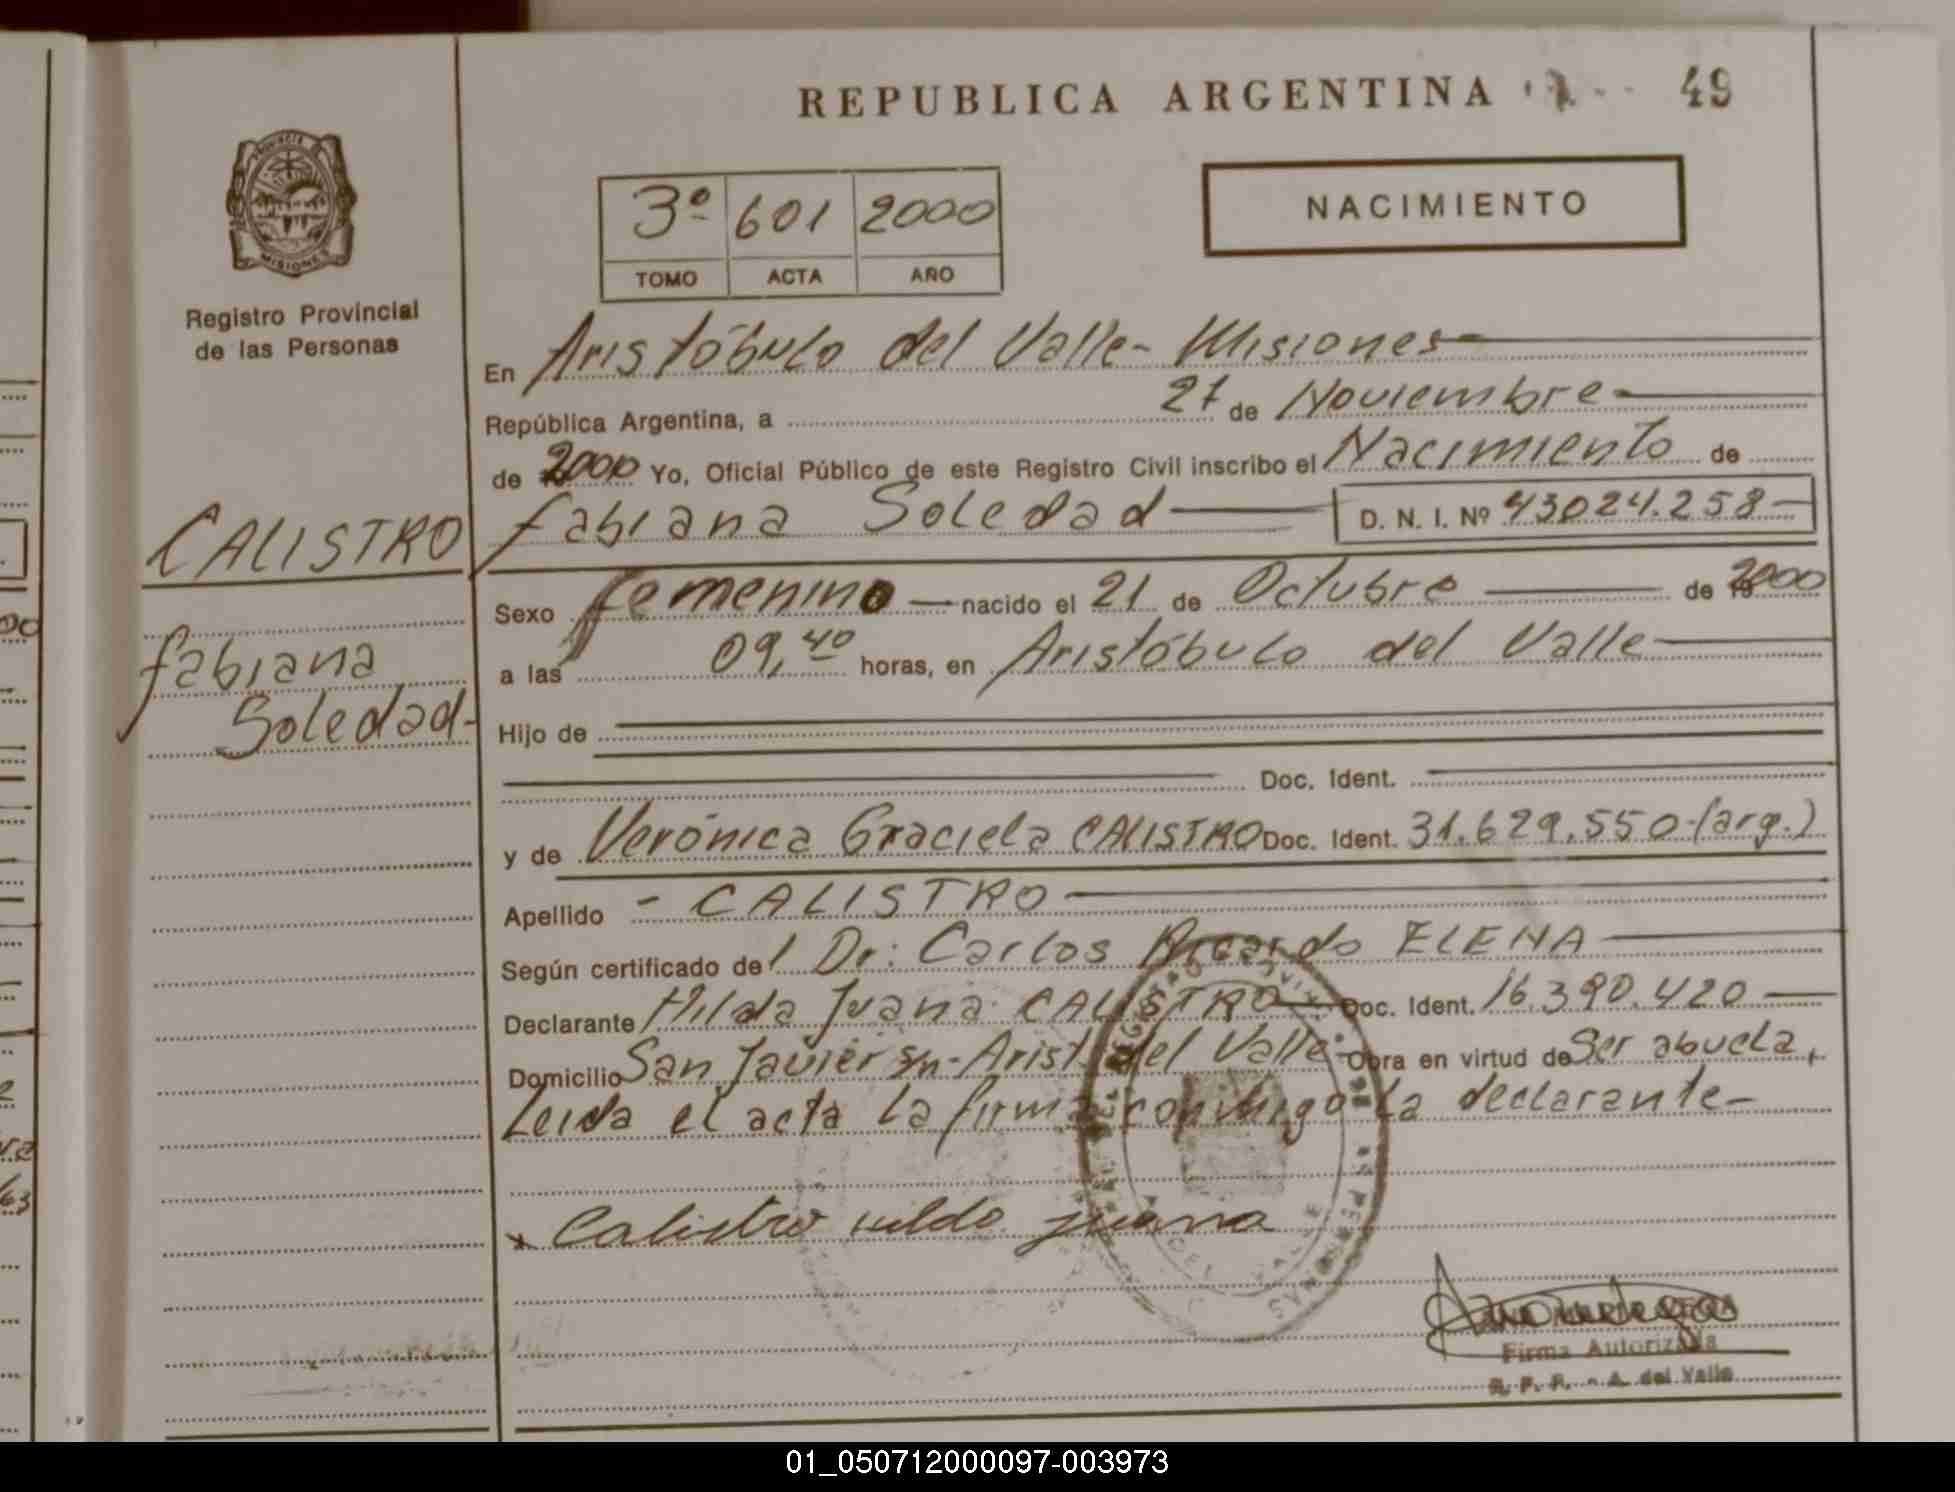 REPUBLICA ARGENTINA 49
PROVINCIA
MISIONES
Registro Provincial
de las Personas
3º 601 2000
TOMO ACTA AÑO
NACIMIENTO
En Aristóbulo del Valle - Misiones
República Argentina, a 27 de Noviembre
de 2000 Yo, Oficial Público de este Registro Civil inscribo el Nacimiento de
Fabiana Soledad D. N. I. Nº 43024.258
CALISTRO
Fabiana
Soledad-
Sexo Femenino nacido el 21 de Octubre de 2000
a las 09,40 horas, en Aristóbulo del Valle
Hijo de
Doc. Ident.
y de Verónica Graciela CALISTRO Doc. Ident. 31.629.550-(arg.)
Apellido - CALISTRO
Según certificado del Dr: Carlos Ricardo ELENA
Declarante Hilda Juana CALISTRO Doc. Ident. 16.390.420
Domicilio San Javier s/n - Arist. del Valle Obra en virtud de Ser abuela,
Leida el acta la firma conmigo la declarante-
x Calistro hilda juana
DEL VALLE
PERSONAS
Firma Autorizada
R. P. P. - A. del Valle
01_050712000097-003973